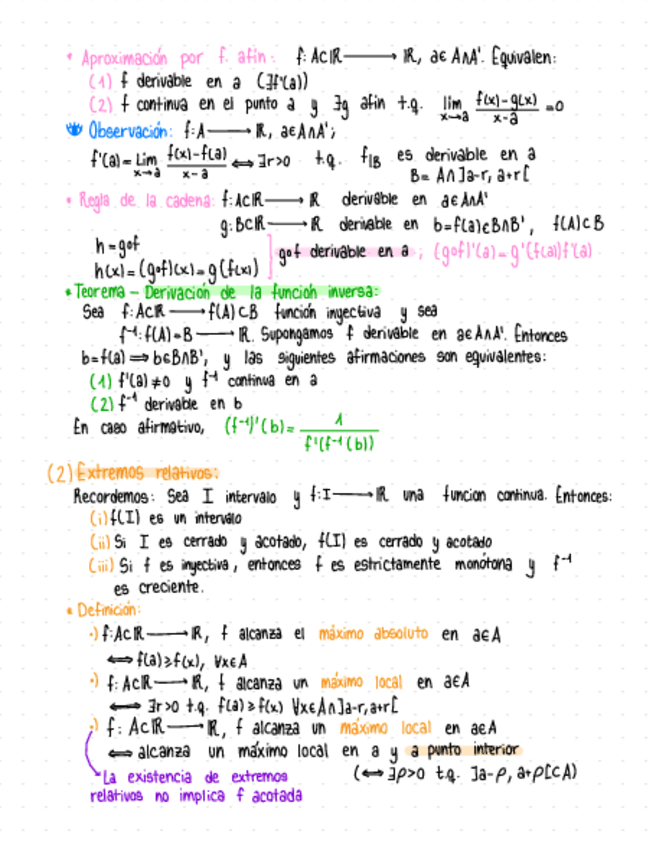 • Aproximación por f. afín: f: A⊂ℝ ⟶ ℝ, a∈A∩A'. Equivalen:
(1) f derivable en a (∃f'(a))
(2) f continua en el punto a y ∃g afín t.q. lim x→a (f(x)-g(x))/(x-a) =0
Observación: f:A ⟶ ℝ, a∈A∩A';
f'(a)= Lim x→a (f(x)-f(a))/(x-a) ⟺ ∃r>0 t.q. f|B es derivable en a
B= A∩]a-r, a+r[
• Regla de la cadena: f:A⊂ℝ ⟶ ℝ derivable en a∈A∩A'
g:B⊂ℝ ⟶ ℝ derivable en b=f(a)∈B∩B', f(A)⊂B
h=g∘f
h(x)=(g∘f)(x)=g(f(x)) ] g∘f derivable en a ; (g∘f)'(a)=g'(f(a))f'(a)
• Teorema - Derivación de la función inversa:
Sea f:A⊂ℝ ⟶ f(A)⊂B función inyectiva y sea
f⁻¹:f(A)=B ⟶ ℝ. Supongamos f derivable en a∈A∩A'. Entonces
b=f(a) ⟹ b∈B∩B', y las siguientes afirmaciones son equivalentes:
(1) f'(a)≠0 y f⁻¹ continua en a
(2) f⁻¹ derivable en b
En caso afirmativo, (f⁻¹)'(b)= 1/f'(f⁻¹(b))
(2) Extremos relativos:
Recordemos: Sea I intervalo y f:I ⟶ ℝ una funcion continua. Entonces:
(i) f(I) es un intervalo
(ii) Si I es cerrado y acotado, f(I) es cerrado y acotado
(iii) Si f es inyectiva, entonces f es estrictamente monótona y f⁻¹
es creciente.
• Definición:
·) f:A⊂ℝ ⟶ ℝ, f alcanza el máximo absoluto en a∈A
⟺ f(a)≥f(x), ∀x∈A
·) f: A⊂ℝ ⟶ ℝ, f alcanza un máximo local en a∈A
⟺ ∃r>0 t.q. f(a)≥f(x) ∀x∈A∩]a-r,a+r[
·) f: A⊂ℝ ⟶ ℝ, f alcanza un máximo local en a∈A
⟺ alcanza un máximo local en a y a punto interior
(⟺ ∃ρ>0 t.q. ]a-ρ, a+ρ[⊂A)
La existencia de extremos
relativos no implica f acotada